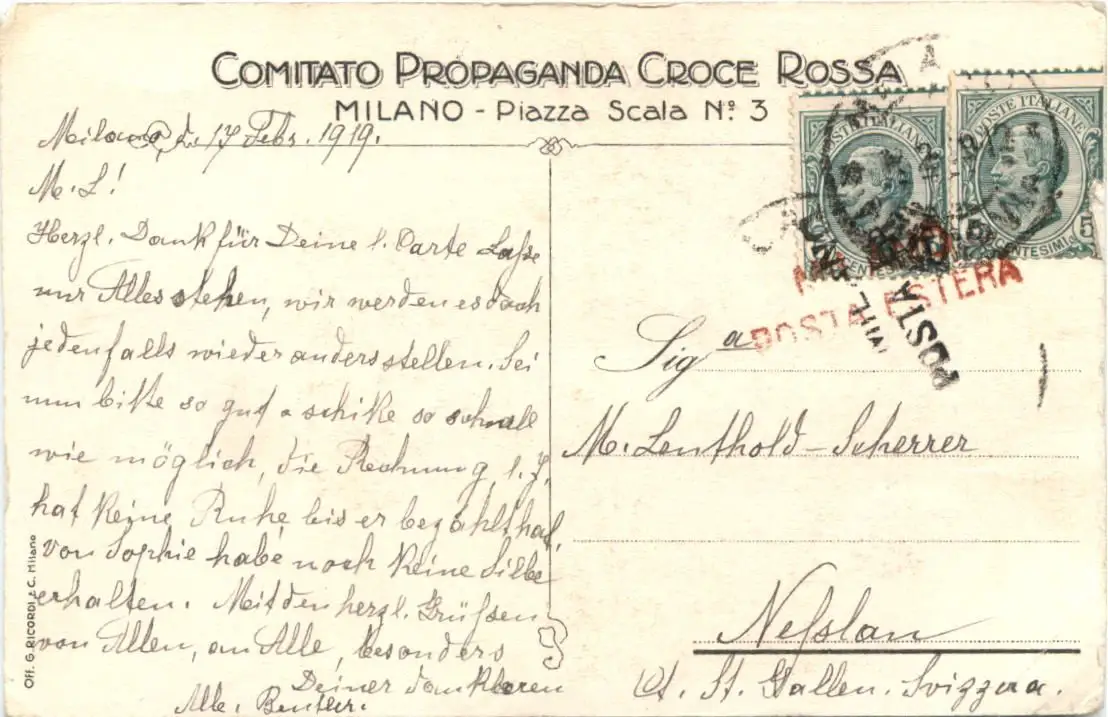 COMITATO PROPAGANDA CROCE ROSSA
MILANO - Piazza Scala Nº 3
Milano, d. 17 Febr. 1919.
M. L!
Herzl. Dank für Deine l. Carte Lasse
nur Alles stehen, wir werden es doch
jedenfalls wieder anders stellen. Sei
nun bitte so gut & schike so schnell
wie möglich, die Rechnung, l. J.
hat keine Ruhe, bis er bezahlt hat.
von Sophie habe noch keine Silbe
erhalten. Mit den herzl. Grüssen
von Allen, an Alle, besonders
Deiner dankbaren
Off. G. RICORDI & C. Milano
POSTE ITALIANE
CENTESIMI
POSTE ITALIANE
CENTESIMI 5
MILANO
POSTA ESTERA
POSTA
Sig a
M. Leuthold-Scherrer
Nesslau
Ct. St. Gallen. Svizzera.